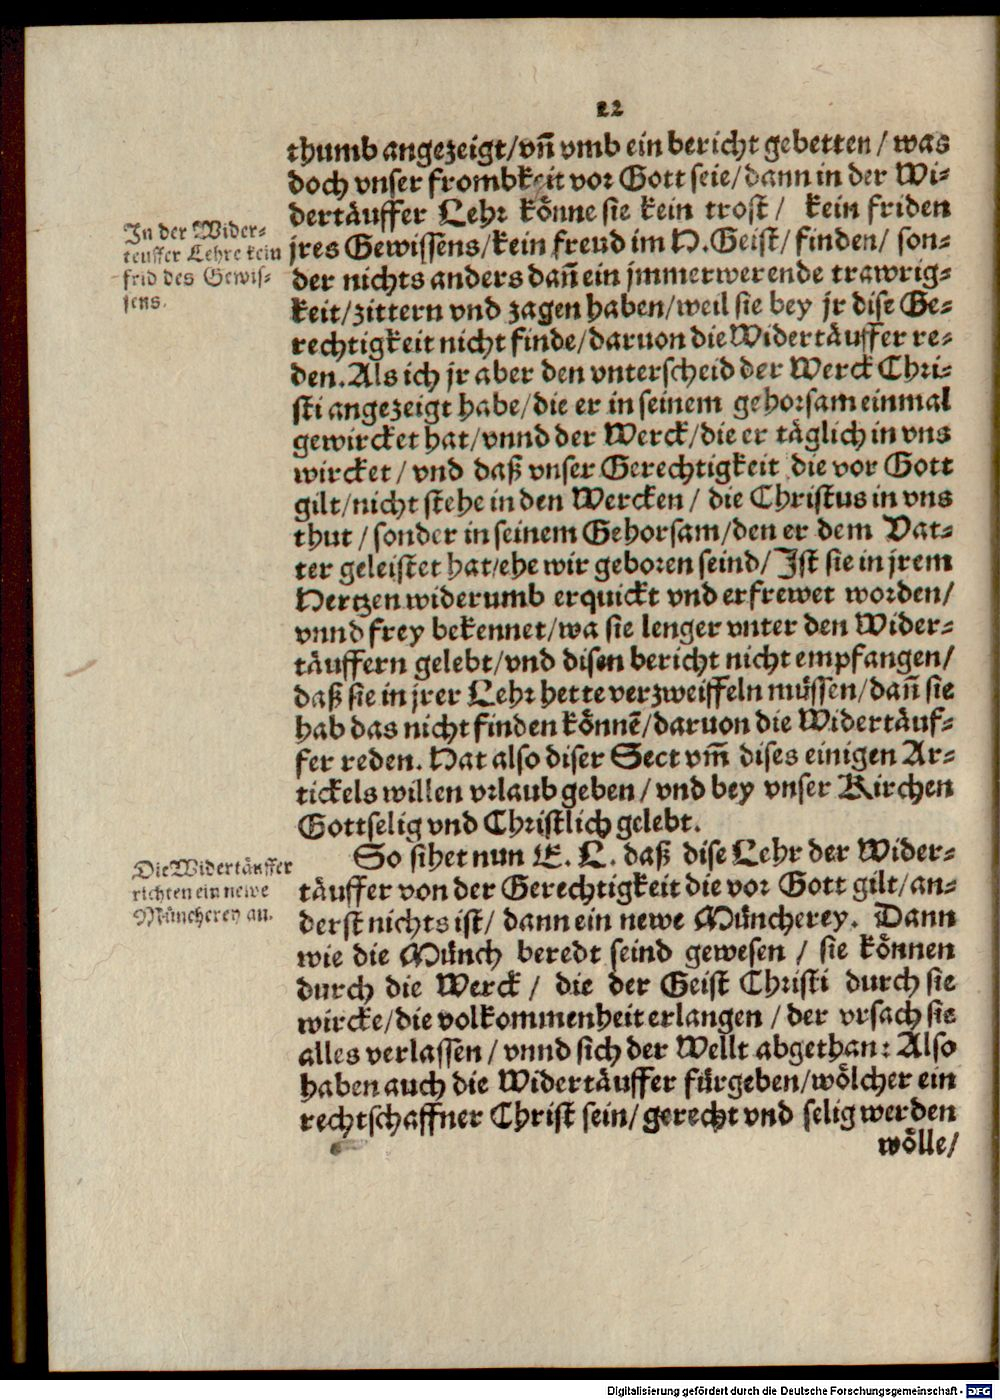 22
thumb angezeigt/vñ vmb ein bericht gebetten/ was
doch vnser frombkeit vor Gott seie/dann in der Wi-
dertäuffer Lehr könne sie kein trost/ kein friden
In der Wider-
teuffer Lehre kein
frid des Gewis-
sens.
jres Gewissens/kein freud im H. Geist/ finden/ son-
der nichts anders dañ ein jmmerwerende trawrig-
keit/zittern vnd zagen haben/weil sie bey jr dise Ge-
rechtigkeit nicht finde/daruon die Widertäuffer re-
den. Als ich jr aber den vnterscheid der Werck Chri-
sti angezeigt habe/die er in seinem gehorsam einmal
gewircket hat/vnnd der Werck/die er täglich in vns
wircket/ vnd daß vnser Gerechtigkeit die vor Gott
gilt/nicht stehe in den Wercken/ die Christus in vns
thut/ sonder in seinem Gehorsam/den er dem Vat-
ter geleistet hat/ehe wir geboren seind/ Ist sie in jrem
Hertzen widerumb erquickt vnd erfrewet worden/
vnnd frey bekennet/wa sie lenger vnter den Wider-
täuffern gelebt/vnd disen bericht nicht empfangen/
daß sie in jrer Lehr hette verzweiffeln müssen/dañ sie
hab das nicht finden könnē/daruon die Widertäuf-
fer reden. Hat also diser Sect vm̃ dises einigen Ar-
tickels willen vrlaub geben/ vnd bey vnser Kirchen
Gottselig vnd Christlich gelebt.
Die Widertäuffer
richten ein newe
Müncherey an.
So sihet nun E. L. daß dise Lehr der Wider-
täuffer von der Gerechtigkeit die vor Gott gilt/an-
derst nichts ist/ dann ein newe Müncherey. Dann
wie die Münch beredt seind gewesen/ sie können
durch die Werck/ die der Geist Christi durch sie
wircke/die volkommenheit erlangen/ der vrsach sie
alles verlassen/ vnnd sich der Wellt abgethan: Also
haben auch die Widertäuffer fürgeben/wölcher ein
rechtschaffner Christ sein/ gerecht vnd selig werden
wölle/
Digitalisierung gefördert durch die Deutsche Forschungsgemeinschaft - DFG